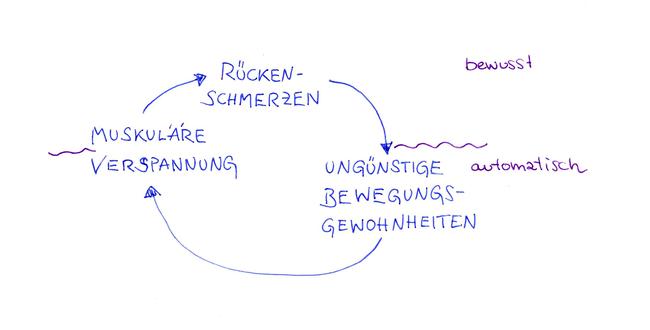 bewusst
RÜCKEN-
SCHMERZEN
MUSKULÄRE
VERSPANNUNG
UNGÜNSTIGE
BEWEGUNGS-
GEWOHNHEITEN
automatisch